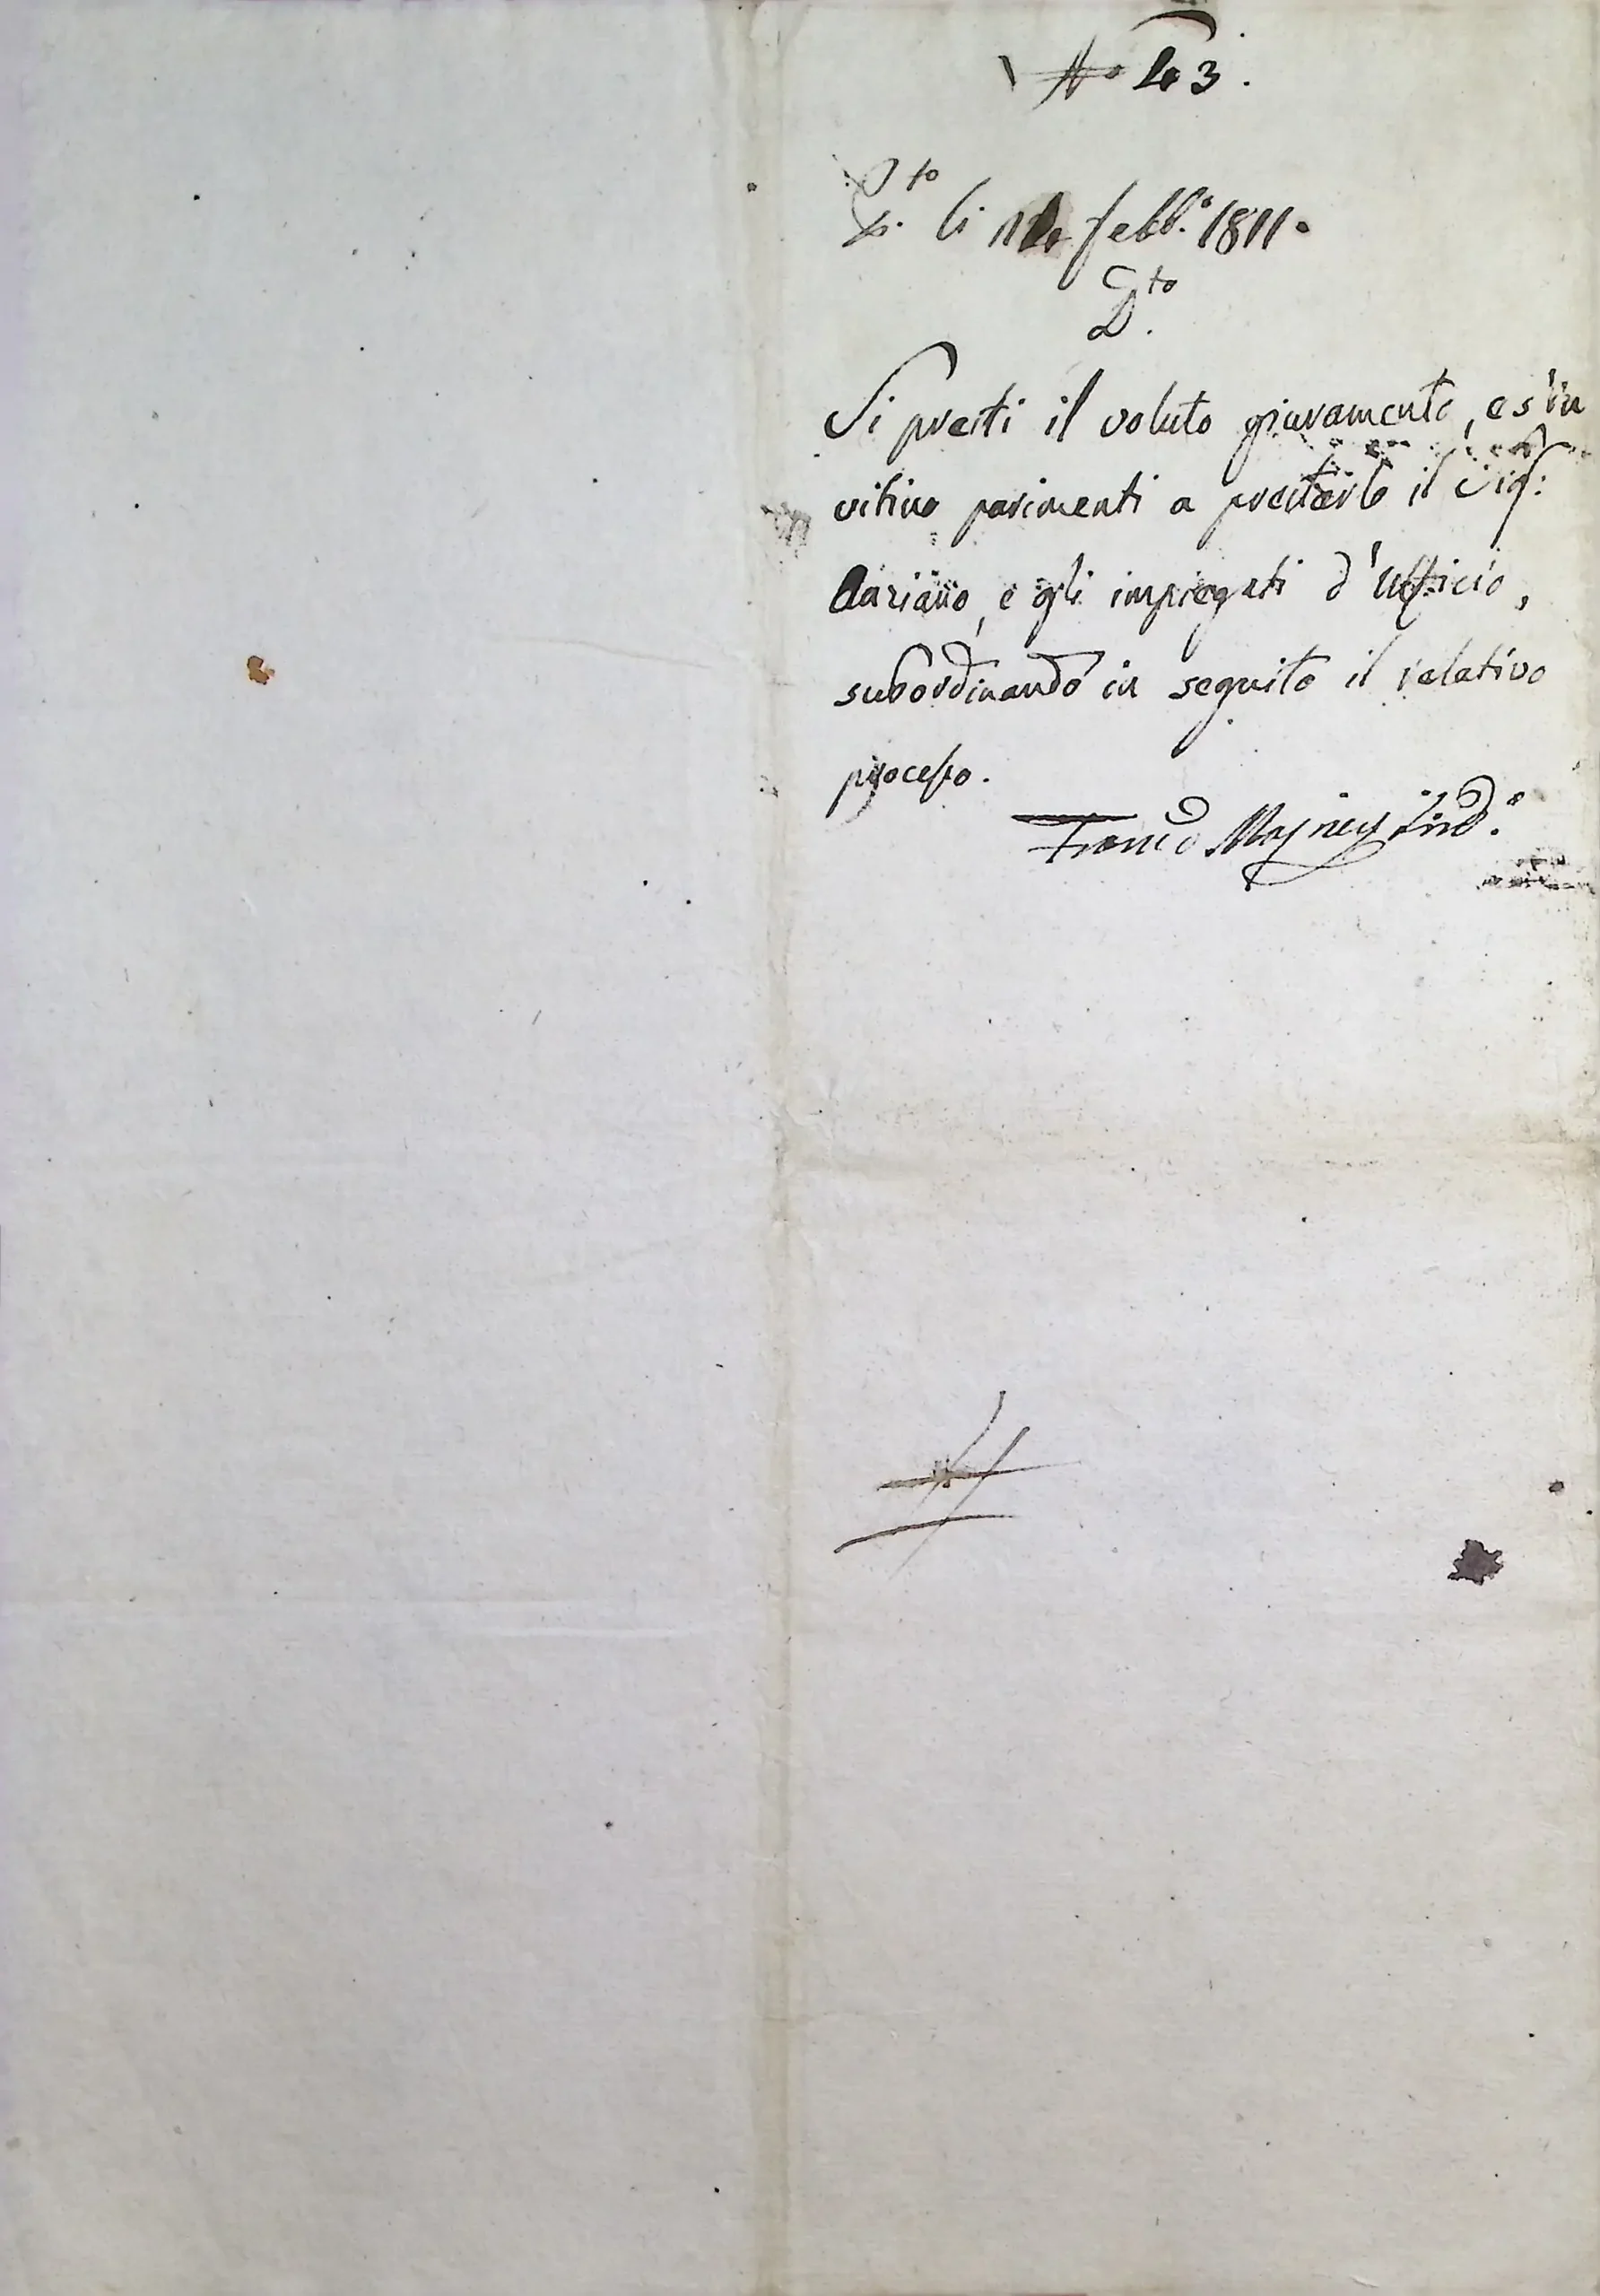 N.o 43.
P.to li 14 febb.o 1811.
D.to
Si presti il voluto giuramento, e s'in
vitino parimenti a prestarlo il Sig:
e gli impiegati d'Ufficio,
subordinando in seguito il relativo
processo.
Franc.o